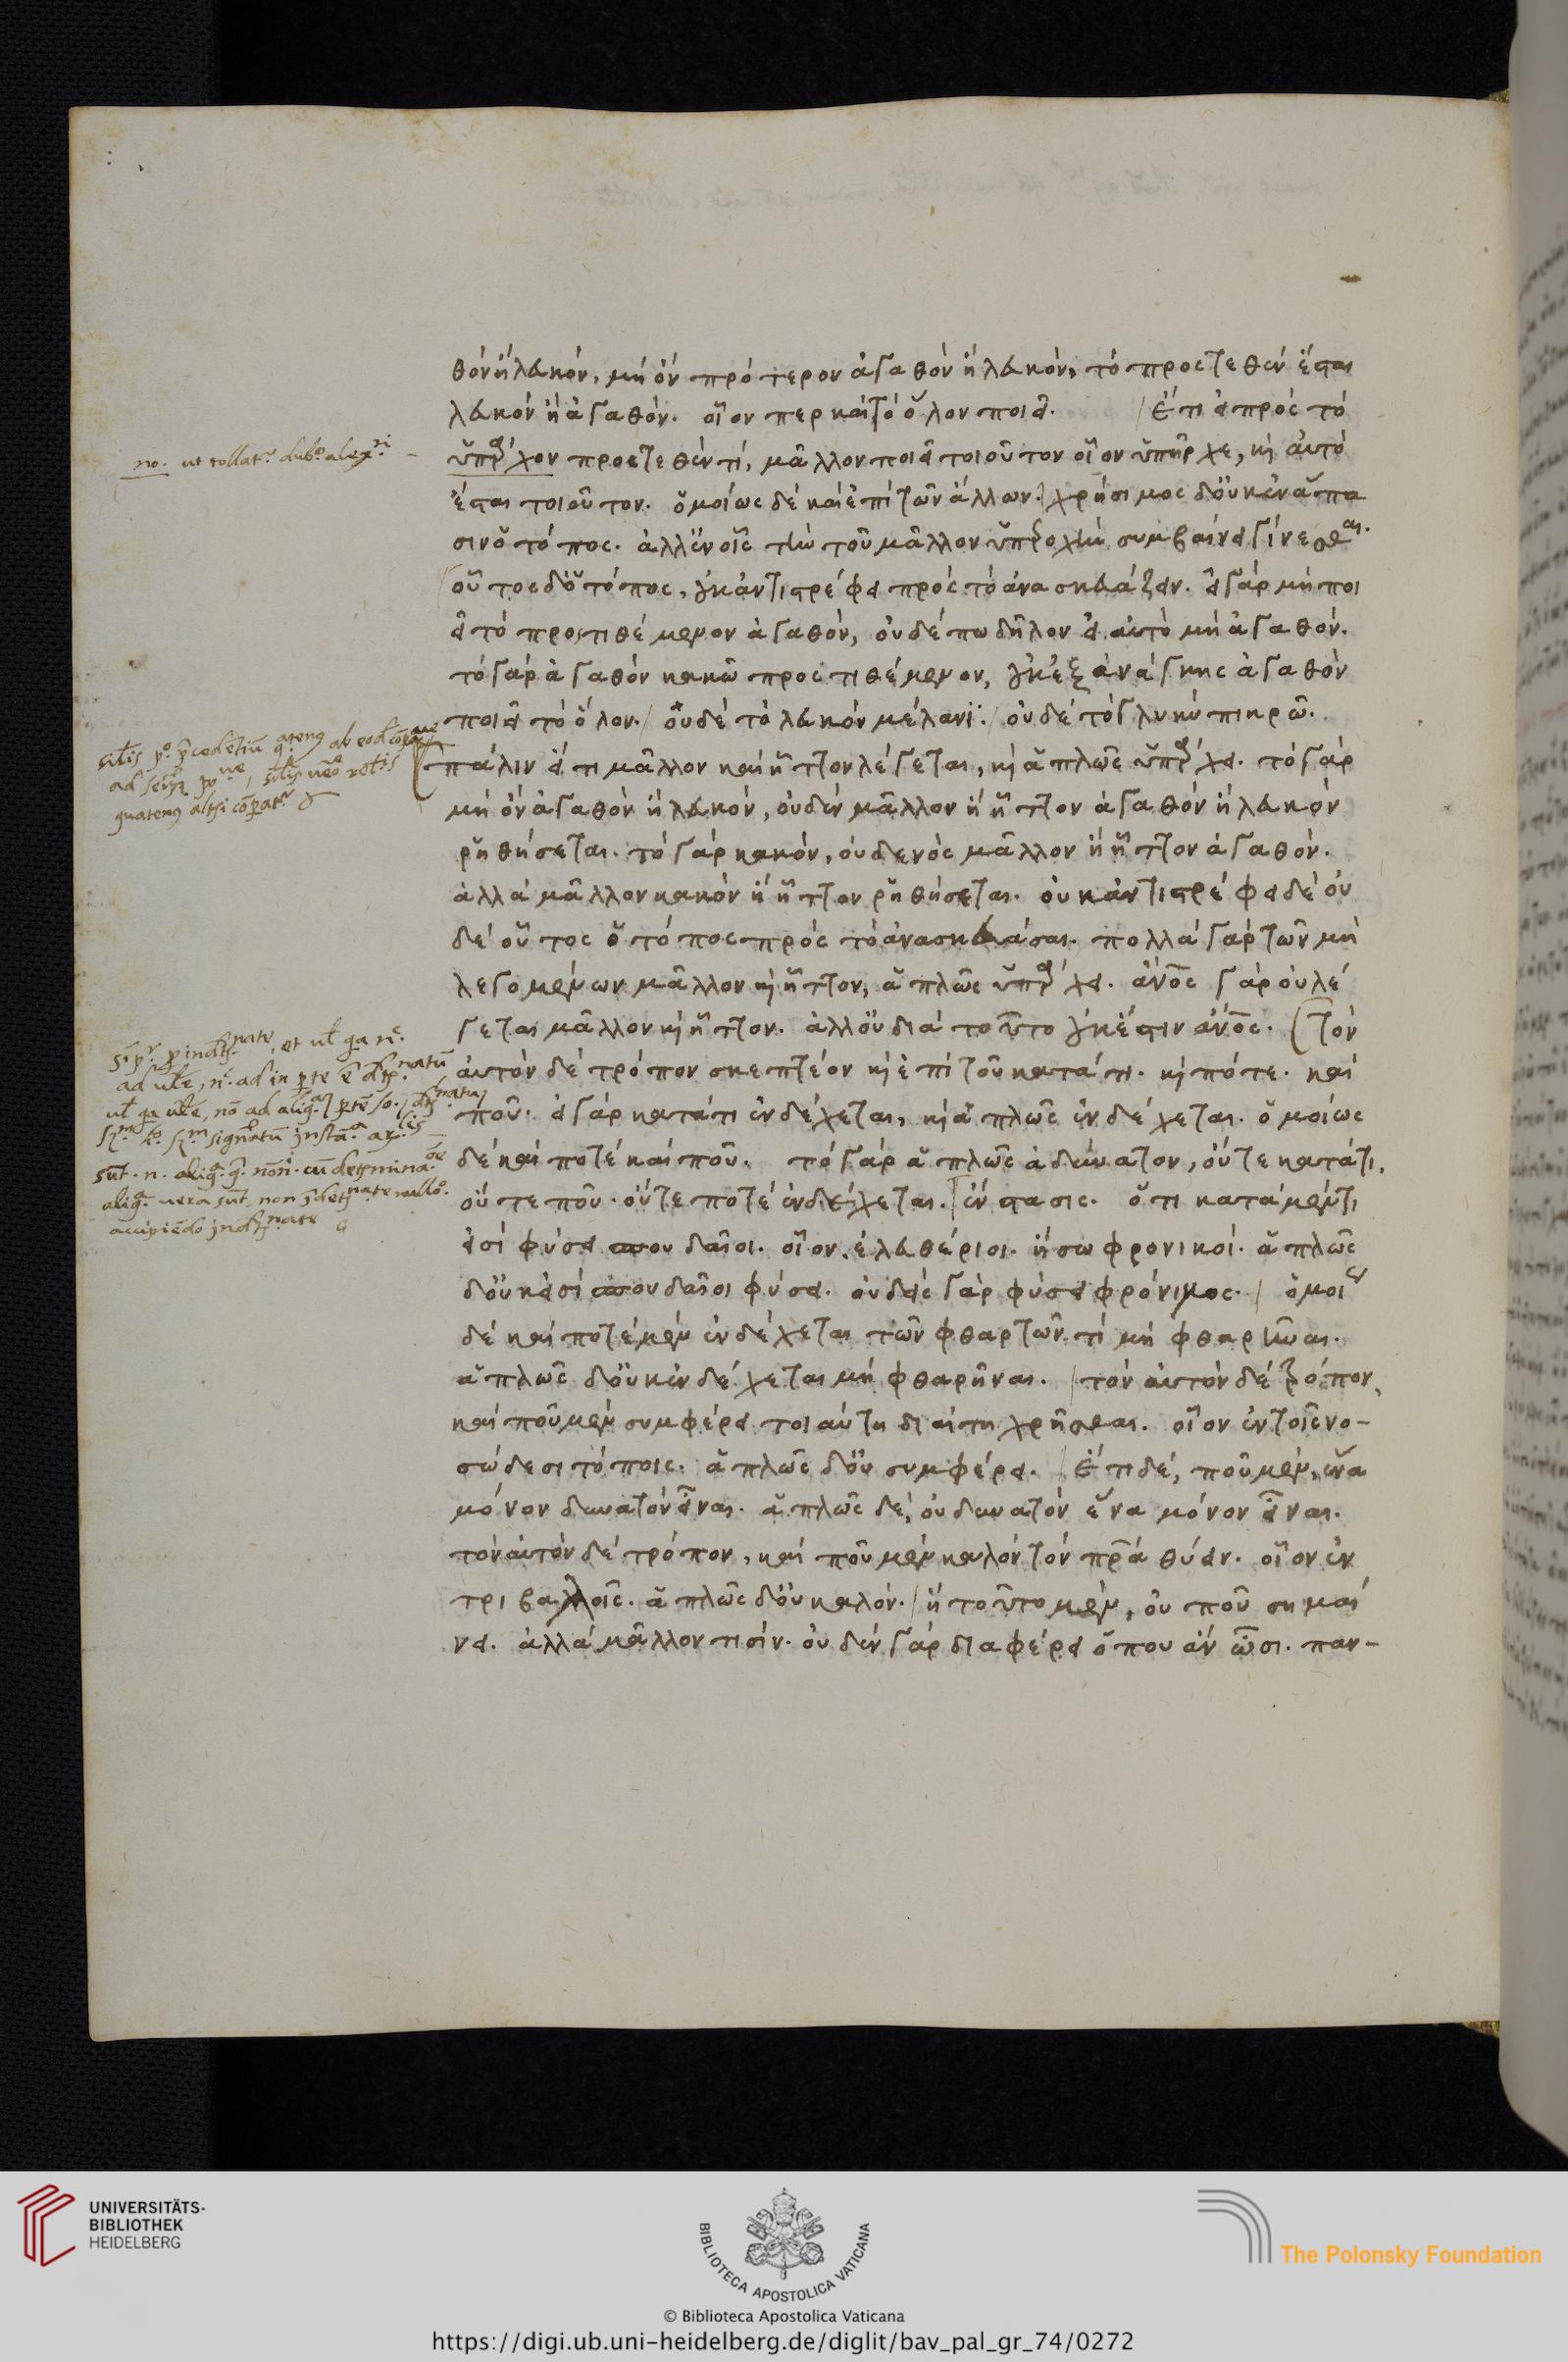 θὸν ἢ λευκὸν, μὴ ὂν πρότερον ἀγαθὸν ἢ λευκὸν, τὸ προστεθὲν ἔσται
λευκὸν ἢ ἀγαθόν. οἷον περ καὶ τὸ ὅλον ποιεῖ. / ἔτι εἰ πρὸς τὸ
no. ut tollat.
ὑπάρχον προστεθέν τι, μᾶλλον ποιεῖ τοιοῦτον οἷον ὑπῆρχε, κ̀ αὐτὸ
ἔσται τοιοῦτον. ὁμοίως δὲ καὶ ἐπὶ τῶν ἄλλων. χρήσιμος δ' οὐκ ἐν ἅπα
σιν ὁ τόπος. ἀλλ' ἐν οἷς τὴν τοῦ μᾶλλον ὑπεροχὴν συμβαίνει γίνεσθαι.
οὗτος δ' ὁ τόπος, οὐκ ἀντιστρέφει πρὸς τὸ ἀνασκευάζειν. εἰ γὰρ μὴ ποι
εῖ τὸ προστιθέμενον ἀγαθὸν, οὐδέπω δῆλον εἰ αὐτὸ μὴ ἀγαθόν.
τὸ γὰρ ἀγαθὸν κακῶ προστιθέμενον, οὐκ ἐξ ἀνάγκης ἀγαθὸν
ποιεῖ τὸ ὅλον. / οὐδὲ τὸ λευκὸν μέλανι. / οὐδὲ τὸ γλυκὺ πικρῶ.
πάλιν εἴ τι μᾶλλον καὶ ἧττον λέγεται, κ̀ ἁπλῶς ὑπάρχει. τὸ γὰρ
μὴ ὂν ἀγαθὸν ἢ λευκὸν, οὐδὲν μᾶλλον ἢ ἧττον ἀγαθὸν ἢ λευκὸν
ῥηθήσεται. τὸ γὰρ κακὸν, οὐδενὸς μᾶλλον ἢ ἧττον ἀγαθόν.
ἀλλὰ μᾶλλον κακὸν ἢ ἧττον ῥηθήσεται. οὐκ ἀντιστρέφει δὲ οὐ
δὲ οὗτος ὁ τόπος πρὸς τὸ ἀνασκευάσαι. πολλὰ γὰρ τῶν μὴ
λεγομένων μᾶλλον κ̀ ἧττον, ἁπλῶς ὑπάρχει. ἄνο̅ς γὰρ οὐ λέ
γεται μᾶλλον κ̀ ἧττον. ἀλλ' οὐ διὰ τοῦτο οὐκ ἔστιν ἄνο̅ς. (τὸν
αὐτὸν δὲ τρόπον σκεπτέον κ̀ ἐπὶ τοῦ κατά τι. κ̀ πότε. καὶ
ποῦ. εἰ γὰρ κατά τι ἐνδέχεται, κ̀ ἁπλῶς ἐνδέχεται. ὁμοίως
δὲ καὶ ποτὲ καὶ ποῦ. τὸ γὰρ ἁπλῶς ἀδύνατον, οὔτε κατά τι,
οὔτε ποῦ. οὔτε ποτὲ ἐνδέχεται. ἔνστασις. ὅτι κατὰ μέν τι
εἰσὶ φύσει σπουδαῖοι. οἷον, ἐλευθέριοι. ἢ σωφρονικοί. ἁπλῶς
δ' οὐκ εἰσὶ σπουδαῖοι φύσει. οὐδεὶς γὰρ φύσει φρόνιμος. / ὁμοίως
δὲ καὶ ποτὲ μὲν ἐνδέχεται τῶν φθαρτῶν τι μὴ φθαρῆναι.
ἁπλῶς δ' οὐκ ἐνδέχεται μὴ φθαρῆναι. / τὸν αὐτὸν δὲ τρόπον,
καὶ ποῦ μὲν συμφέρει τοιαύτη διαίτη χρῆσθαι. οἷον ἐν τοῖς νο-
σώδεσι τόποις. ἁπλῶς δ' οὐ συμφέρει. / ἔτι δὲ, ποῦ μὲν, ἕνα
μόνον δυνατὸν εἶναι. ἁπλῶς δὲ, οὐ δυνατὸν ἕνα μόνον εἶναι.
τὸν αὐτὸν δὲ τρόπον, καὶ ποῦ μὲν καλὸν τὸν πρ̅α θύειν. οἷον ἐν
τριβαλλοῖς. ἁπλῶς δ' οὐ καλόν. / ἢ τοῦτο μὲν, οὐ ποῦ σημαί
νει. ἀλλὰ μᾶλλον τισίν. οὐδὲν γὰρ διαφέρει ὅπου ἂν ὦσι. παν-
UNIVERSITÄTS-
BIBLIOTHEK
HEIDELBERG
BIBLIOTECA APOSTOLICA VATICANA
The Polonsky Foundation
© Biblioteca Apostolica Vaticana
https://digi.ub.uni-heidelberg.de/diglit/bav_pal_gr_74/0272